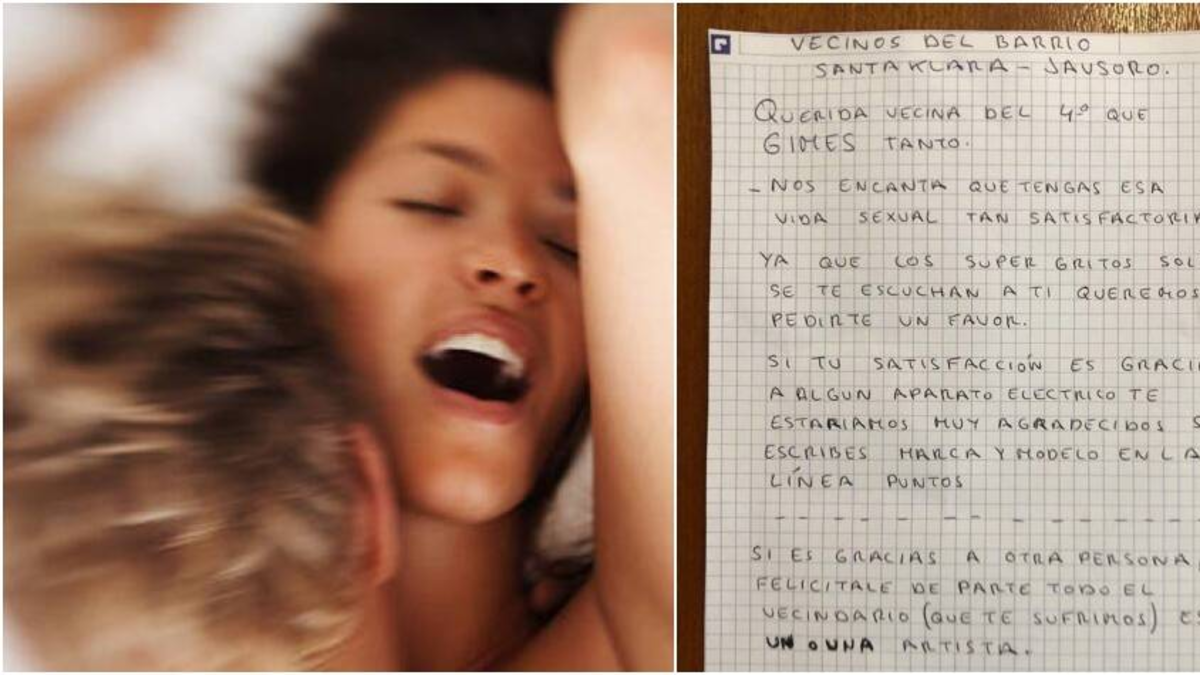 VECINOS DEL BARRIO
SANTA KLARA - JAUSORO.
QUERIDA VECINA DEL 4º QUE
GIMES TANTO.
- NOS ENCANTA QUE TENGAS ESA
VIDA SEXUAL TAN SATISFACTORI
YA QUE LOS SUPER GRITOS SOL
SE TE ESCUCHAN A TI QUEREMOS
PEDIRTE UN FAVOR.
SI TU SATISFACCIÓN ES GRACI
A ALGUN APARATO ELECTRICO TE
ESTARIAMOS MUY AGRADECIDOS S
ESCRIBES MARCA Y MODELO EN LA
LÍNEA PUNTOS
SI ES GRACIAS A OTRA PERSONA,
FELICITALE DE PARTE TODO EL
VECINDARIO (QUE TE SUFRIMOS) ES
UN O UNA ARTISTA.